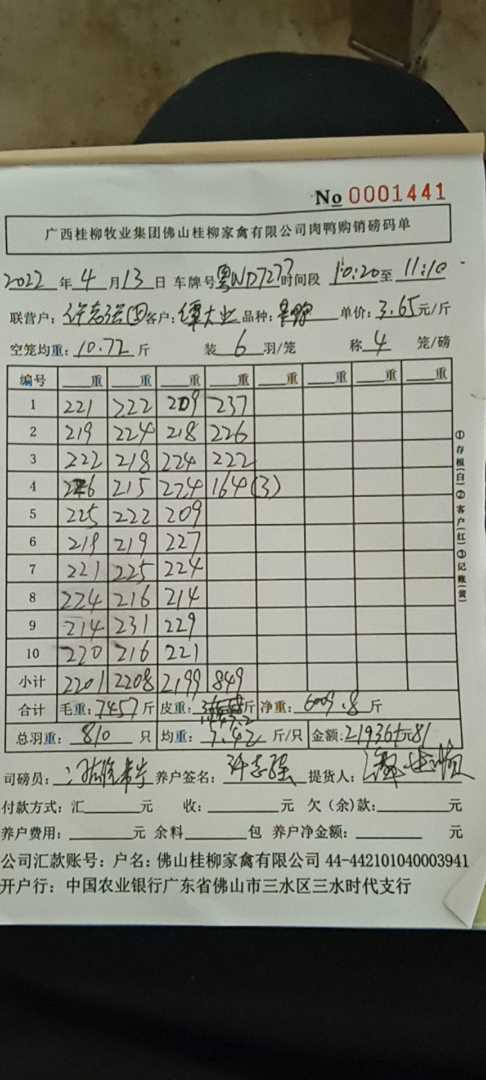 No 0001441
广西桂柳牧业集团佛山桂柳家禽有限公司肉鸭购销磅码单
2022 年 4 月 13 日 车牌号 粤WD7277 时间段 10:20 至 11:10
联营户: 许志强 客户: 谭大业 品种: 单价: 3.65 元/斤
空笼均重: 10.72 斤 装 6 羽/笼 称 4 笼/磅
编号 重 重 重 重 重 重 重 重
1 221 222 209 237
2 219 224 218 226
3 222 218 224 222
4 226 215 224 164(3)
5 225 222 209
6 219 219 227
7 221 225 224
8 224 216 214
9 214 231 229
10 220 216 221
小计 2201 2208 2199 849
合计 毛重: 7457 斤 皮重: 1447.2 斤 净重: 6009.8 斤
总羽重: 810 只 均重: 7.42 斤/只 金额: 21936元81
司磅员: 养户签名: 许志强 提货人:
付款方式: 汇 元 收: 元 欠(余)款: 元
养户费用: 元 余料 包 养户净金额: 元
公司汇款账号: 户名: 佛山桂柳家禽有限公司 44-442101040003941
开户行: 中国农业银行广东省佛山市三水区三水时代支行
①存根(白)②客户(红)③记账(黄)